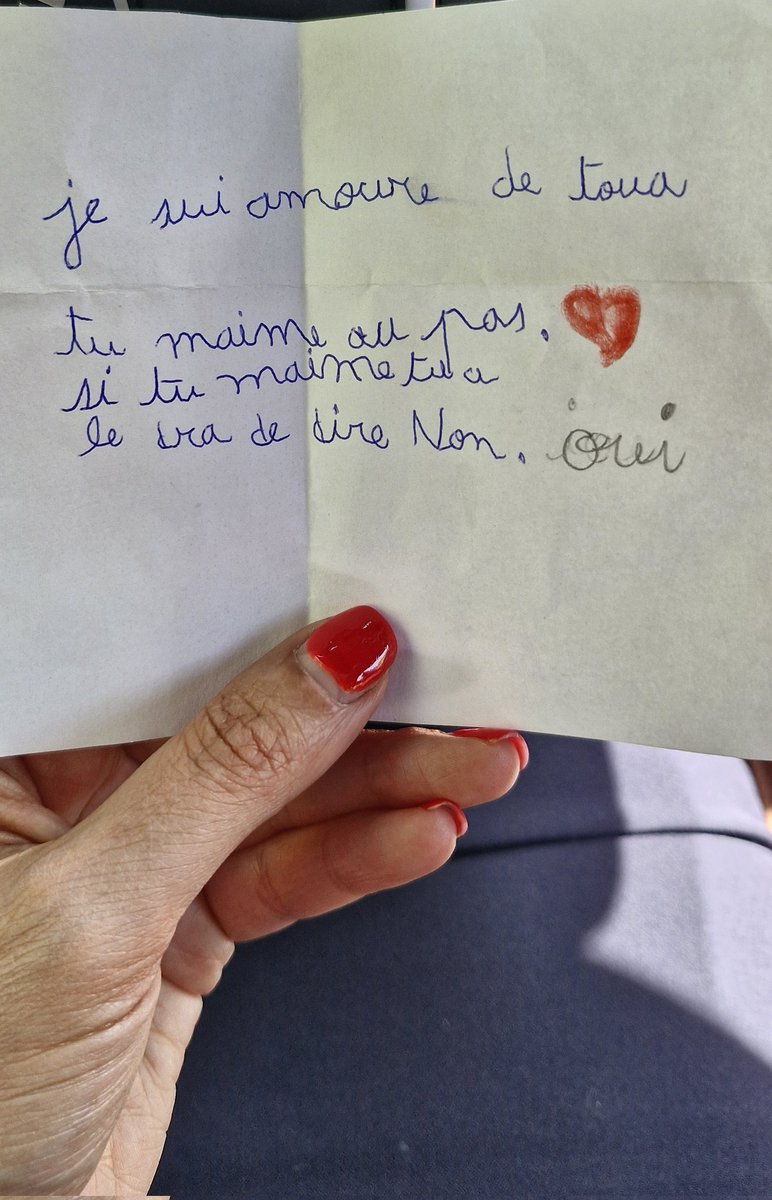 je sui amoure de toua
tu maime ou pas.
si tu maime tu a
le dra de dire Non. oui